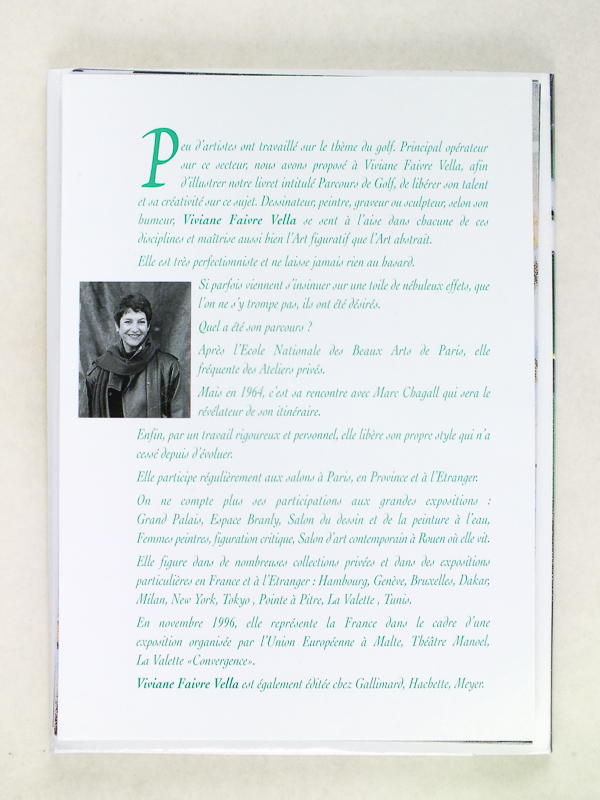 Peu d'artistes ont travaillé sur le thème du golf. Principal opérateur
sur ce secteur, nous avons proposé à Viviane Faivre Vella, afin
d'illustrer notre livret intitulé Parcours de Golf, de libérer son talent
et sa créativité sur ce sujet. Dessinateur, peintre, graveur ou sculpteur, selon son
humeur, Viviane Faivre Vella se sent à l'aise dans chacune de ces
disciplines et maîtrise aussi bien l'Art figuratif que l'Art abstrait.
Elle est très perfectionniste et ne laisse jamais rien au hasard.
Si parfois viennent s'insinuer sur une toile de nébuleux effets, que
l'on ne s'y trompe pas, ils ont été désirés.
Quel a été son parcours ?
Après l'Ecole Nationale des Beaux Arts de Paris, elle
fréquente des Ateliers privés.
Mais en 1964, c'est sa rencontre avec Marc Chagall qui sera le
révélateur de son itinéraire.
Enfin, par un travail rigoureux et personnel, elle libère son propre style qui n'a
cessé depuis d'évoluer.
Elle participe régulièrement aux salons à Paris, en Province et à l'Etranger.
On ne compte plus ses participations aux grandes expositions :
Grand Palais, Espace Branly, Salon du dessin et de la peinture à l'eau,
Femmes peintres, figuration critique, Salon d'art contemporain à Rouen où elle vit.
Elle figure dans de nombreuses collections privées et dans des expositions
particulières en France et à l'Etranger : Hambourg, Genève, Bruxelles, Dakar,
Milan, New York, Tokyo , Pointe à Pitre, La Valette , Tunis.
En novembre 1996, elle représente la France dans le cadre d'une
exposition organisée par l'Union Européenne à Malte, Théâtre Manoel,
La Valette «Convergence».
Viviane Faivre Vella est également éditée chez Gallimard, Hachette, Meyer.